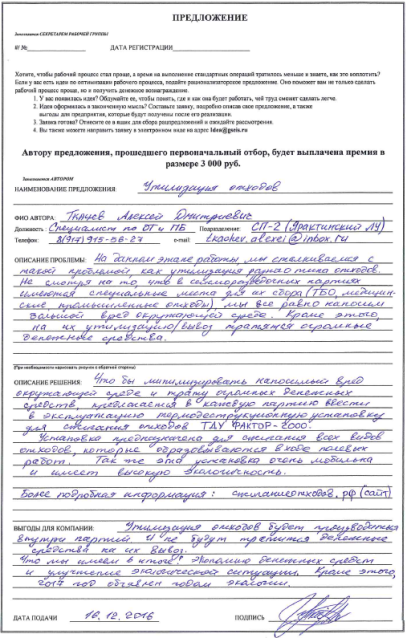 ПРЕДЛОЖЕНИЕ
Заполняется СЕКРЕТАРЕМ РАБОЧЕЙ ГРУППЫ
№ №
ДАТА РЕГИСТРАЦИИ
Хотите, чтобы рабочий процесс стал проще, а время на выполнение стандартных операций тратилось меньше и знаете, как это воплотить?
Если у вас есть идеи по оптимизации рабочего процесса, подайте рационализаторское предложение. Оно поможет вам не только сделать
рабочий процесс проще, но и получить денежное вознаграждение.
1. У вас появилась идея? Обдумайте ее, чтобы понять, где и как она будет работать, чей труд сможет сделать легче.
2. Идея оформилась в законченную мысль? Составьте заявку, подробно описав свое предложение, а также
выгоды для предприятия, которые будут получены после его реализации.
3. Заявка готова? Отнесите ее в ящик для сбора рацпредложений и ожидайте рассмотрения.
4. Вы также можете направить заявку в электронном виде на адрес
Автору предложения, прошедшего первоначальный отбор, будет выплачена премия в
размере 3 000 руб.
Заполняется АВТОРОМ
НАИМЕНОВАНИЕ ПРЕДЛОЖЕНИЯ Утилизация отходов
ФИО АВТОРА: Ткачев Алексей Дмитриевич
Должность: Специалист по ОТ и ПБ Подразделение: СП-2 (Ярактинский ЛУ)
Телефон: 8(917) 915-56-27 e-mail tkachev.alexei@inbox.ru
ОПИСАНИЕ ПРОБЛЕМЫ: На данном этапе работы, мы сталкиваемся с
такой проблемой, как утилизация разного типа отходов.
Не смотря на то, что в сейсморазведочных партиях
имеются специальные места для их сбора (ТБО, медицин-
ские, промышленные отходы), мы все равно наносим
большой вред окружающей среде. Кроме этого,
на их утилизацию/вывоз тратятся огромные
денежные средства.
(При необходимости нарисовать рисунок в обратной стороне)
ОПИСАНИЕ РЕШЕНИЯ: Что бы минимизировать наносимый вред
окружающей среде и трату огромных денежных
средств, предлагается в каждую партию ввести
в эксплуатацию термодеструкционную установку
для сжигания отходов ТДУ ФАКТОР-2000.
Установка предназначена для сжигания всех видов
отходов, которые образовываются в ходе полевых
работ. Так же эта установка очень мобильна
и имеет высокую экологичность.
Более подробная информация: сжиганиеотходов.рф (сайт)
ВЫГОДЫ ДЛЯ КОМПАНИИ: Утилизация отходов будет производиться
внутри партий. И не будут тратится денежные
средства на их вывоз.
Что мы имеем в итоге? Экономию денежных средств
и улучшение экологической ситуации. Кроме этого,
2017 год объявлен годом экологии.
ДАТА ПОДАЧИ 16.12.2016 ПОДПИСЬ